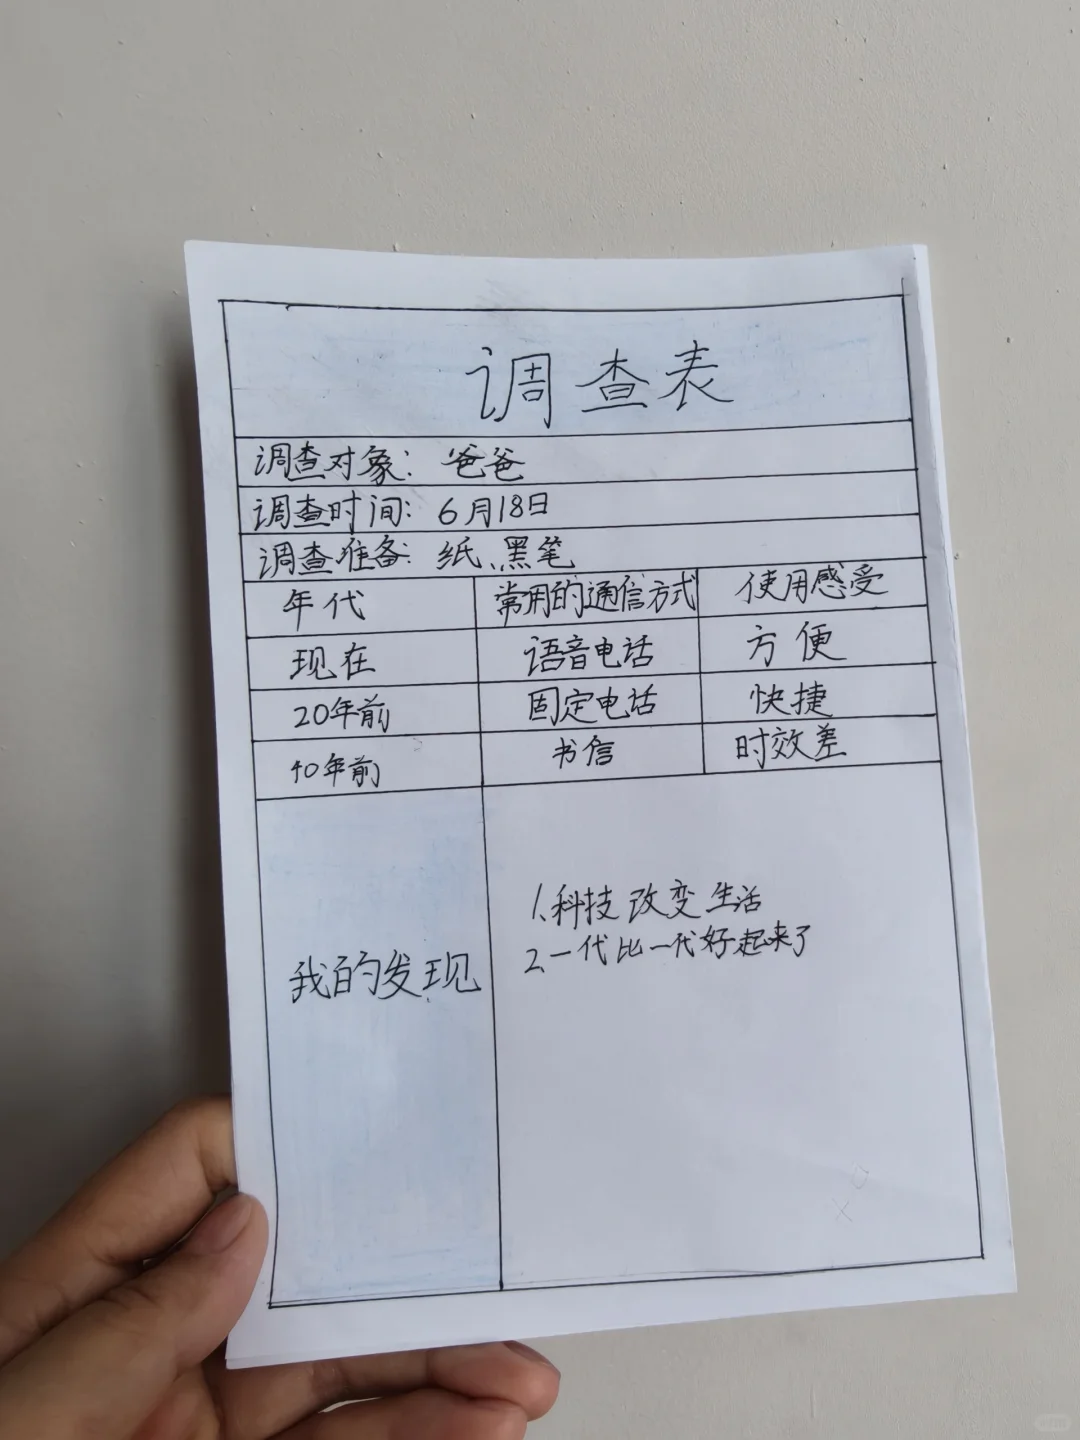 调查表
调查对象：爸爸
调查时间：6月18日
调查准备：纸、黑笔
年代 常用的通信方式 使用感受
现在 语音电话 方便
20年前 固定电话 快捷
40年前 书信 时效差
我的发现
1、科技改变生活
2、一代比一代好起来了